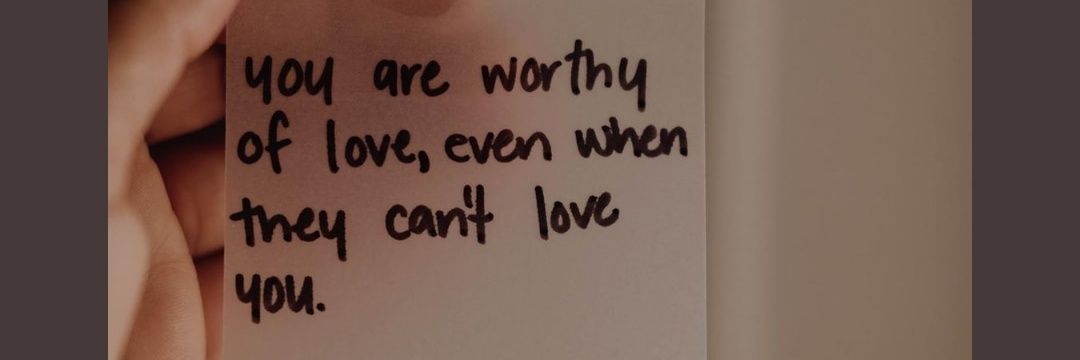 you are worthy
of love, even when
they can't love
you.